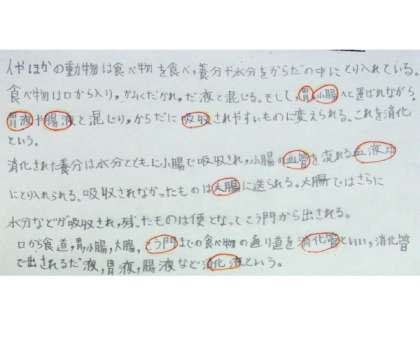 人やほかの動物は食べ物を食べ,養分や水分をからだの中にとり入れている。
食べ物は口から入り,かみくだかれ,だ液と混じる。そして,胃,小腸へと運ばれながら,
胃液や腸液と混じり,からだに吸収されやすいものに変えられる。これを消化
という。
消化された養分は水分とともに小腸で吸収され,小腸の血管を流れる血液中
にとり入れられる。吸収されなかったものは大腸に送られる。大腸ではさらに
水分などが吸収され,残ったものは便となってこう門から出される。
口から食道,胃,小腸,大腸,こう門までの食べ物の通り道を消化管といい,消化管
で出されるだ液,胃液,腸液などを消化液という。